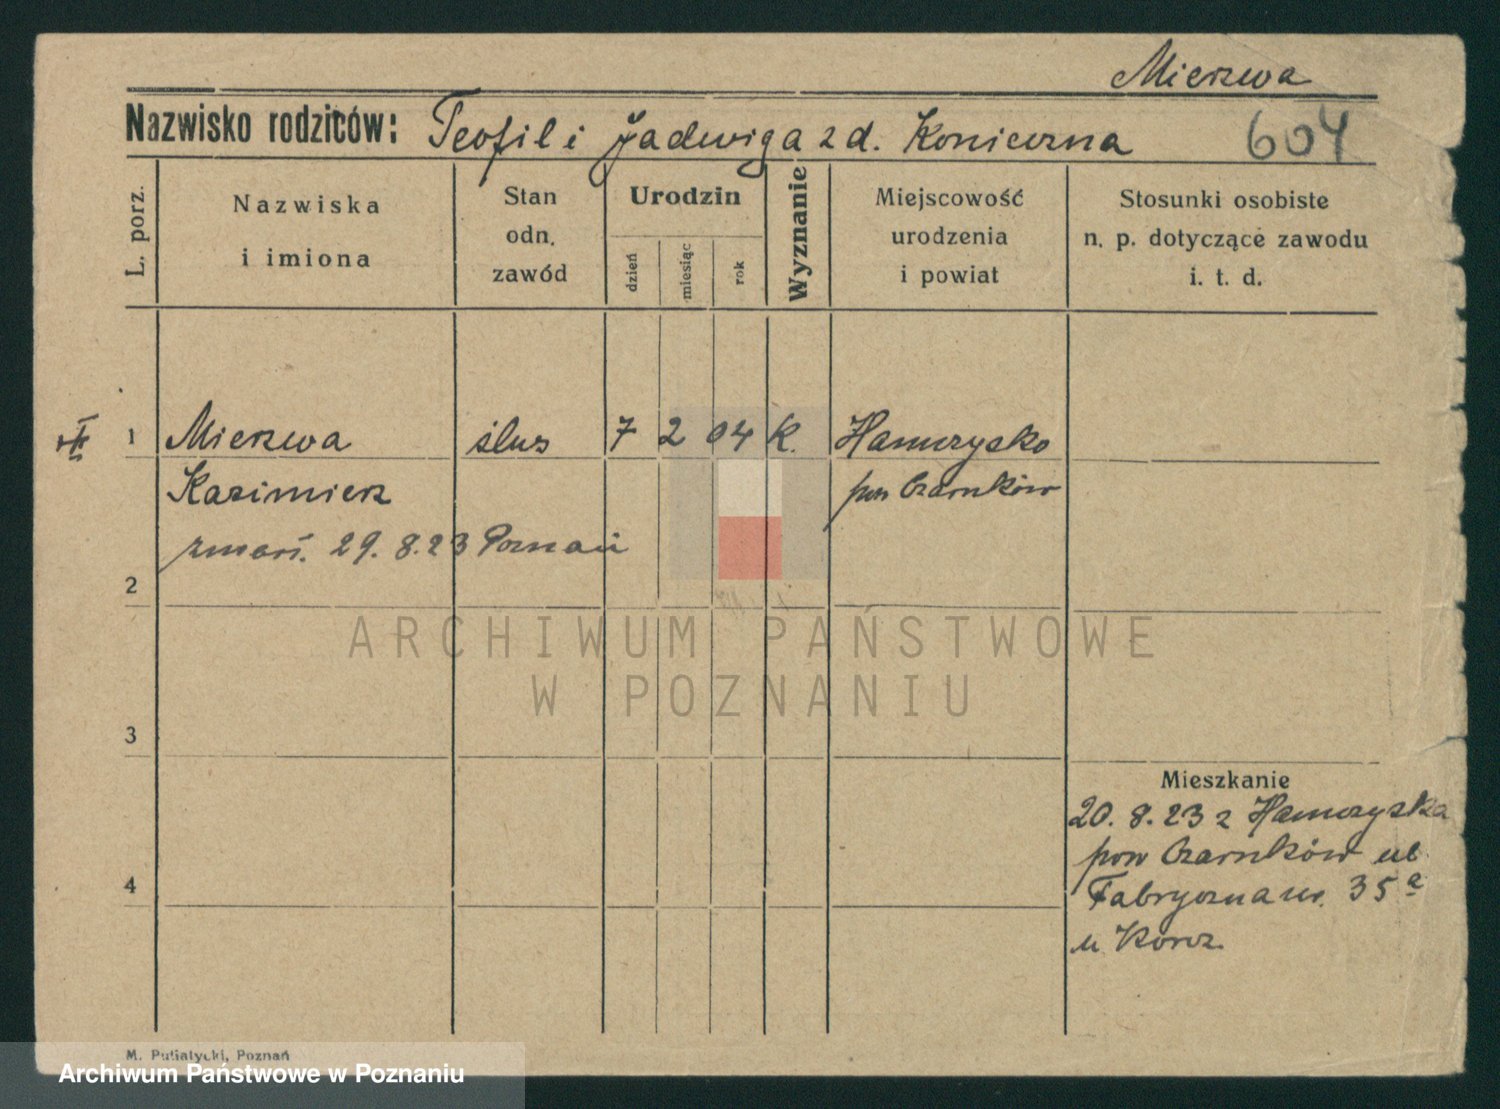 Mierzwa
Nazwisko rodziców: Teofil i Jadwiga z d. Konieczna 604
L. porz.
Nazwiska
i imiona
Stan
odn.
zawód
Urodzin
dzień
miesiąc
rok
Wyznanie
Miejscowość
urodzenia
i powiat
Stosunki osobiste
n. p. dotyczące zawodu
i. t. d.
1 Mierzwa ślus 7 2 04 k. Hamrzysko
Kazimierz pow Czarnków
zmarł. 29. 8. 23 Poznań
2
ARCHIWUM PAŃSTWOWE
W POZNANIU
3
Mieszkanie
20. 8. 23 z Hamrzyska
pow Czarnków ul.
4
Fabryczna nr. 35 a
u Korcz
M. Putiatycki, Poznań
Archiwum Państwowe w Poznaniu